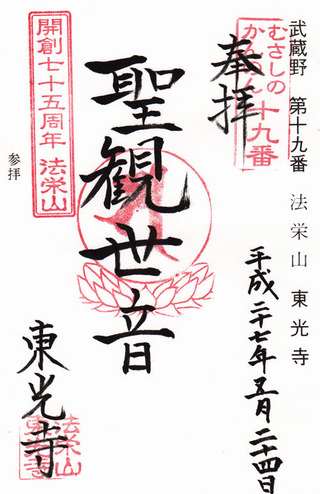 武蔵野 第十九番 法栄山 東光寺
むさしの
かんのん十九番
奉拝
平成二十七年五月二十四日
聖観世音
開創七十五周年 法栄山
参拝
東光寺
法栄山
東光寺